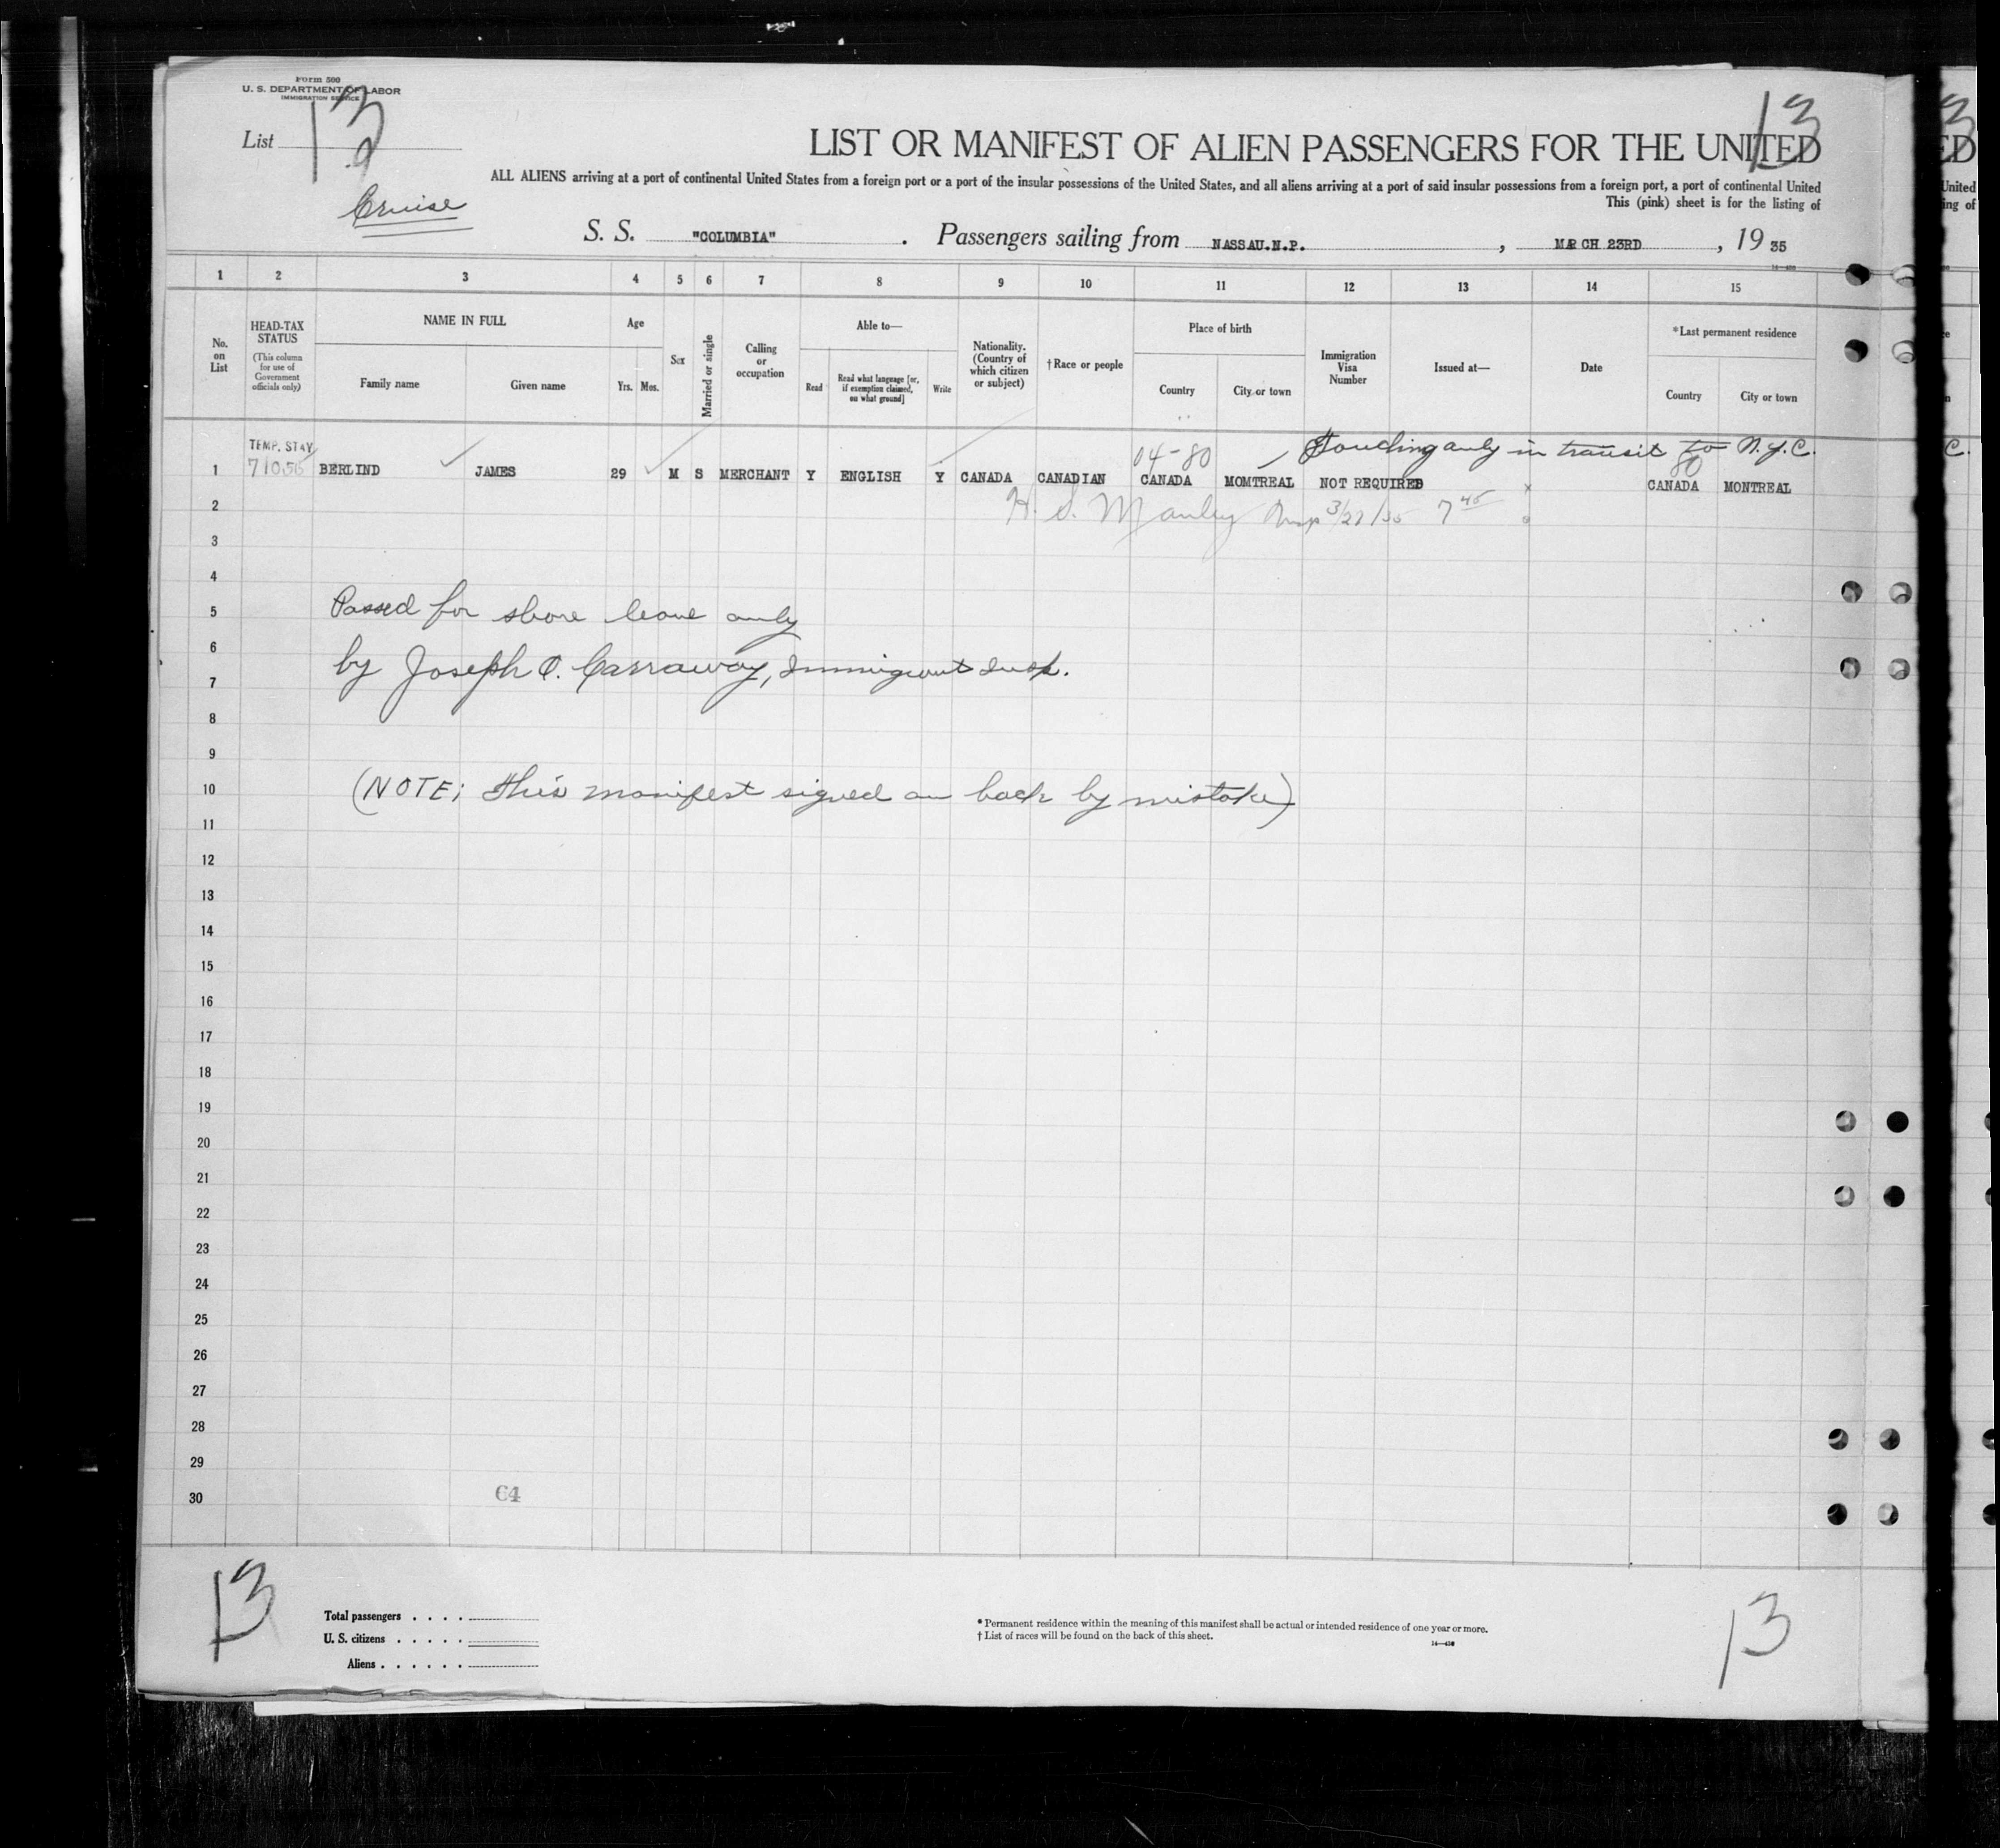 Form 500
U. S. DEPARTMENT OF LABOR
IMMIGRATION SERVICE
List 13
13
LIST OR MANIFEST OF ALIEN PASSENGERS FOR THE UNITED
ALL ALIENS arriving at a port of continental United States from a foreign port or a port of the insular possessions of the United States, and all aliens arriving at a port of said insular possessions from a foreign port, a port of continental United
This (pink) sheet is for the listing of
Cruise
S. S. "COLUMBIA" . Passengers sailing from NASSAU.N.P. , MARCH 23RD , 19 35
1 2 3 4 5 6 7 8 9 10 11 12 13 14 15
No. on List
HEAD-TAX STATUS
(This column for use of Government officials only)
NAME IN FULL
Family name Given name
Age
Yrs. Mos.
Sex
Married or single
Calling or occupation
Able to—
Read
Read what language [or, if exemption claimed, on what ground]
Write
Nationality. (Country of which citizen or subject)
†Race or people
Place of birth
Country City or town
Immigration Visa Number
Issued at—
Date
*Last permanent residence
Country City or town
TEMP. STAY 04-80 Touching only in transit to N.Y.C.
80
1 BERLIND JAMES 29 M S MERCHANT Y ENGLISH Y CANADA CANADIAN CANADA MOMTREAL NOT REQUIRED CANADA MONTREAL
2 H. S. Manley Insp 3/27/35 7 45
3
4
5 Passed for shore leave only
6
7 by Joseph C. Carraway, Immigrant Insp.
8
9
10 (NOTE; This manifest signed on back by mistake)
11
12
13
14
15
16
17
18
19
20
21
22
23
24
25
26
27
28
29
30 C4
13
Total passengers . . . .
U. S. citizens . . . . .
Aliens . . . . . .
* Permanent residence within the meaning of this manifest shall be actual or intended residence of one year or more.
† List of races will be found on the back of this sheet.
13